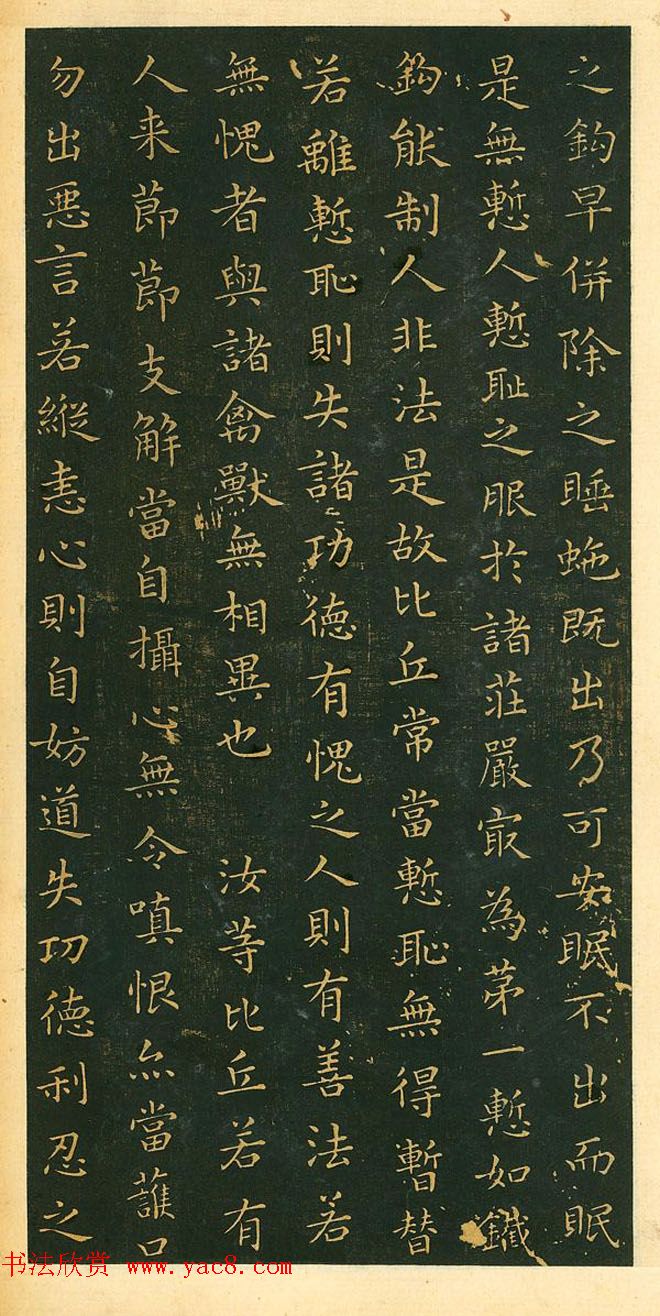 之鈎早併除之睡虵既出乃可安眠不出而眠
是無慙人慙耻之服扵諸莊嚴㝡為苐一慙如鐵
鈎能制人非法是故比丘常當慙恥無得暫替
若離慙恥則失諸功徳有愧之人則有善法若
無愧者與諸禽獸無相異也 汝䓁比丘若有
人来莭莭支解當自攝心無令嗔恨亦當護口
勿出惡言若縱恚心則自妨道失功徳利忍之
书法欣赏 www.yac8.com